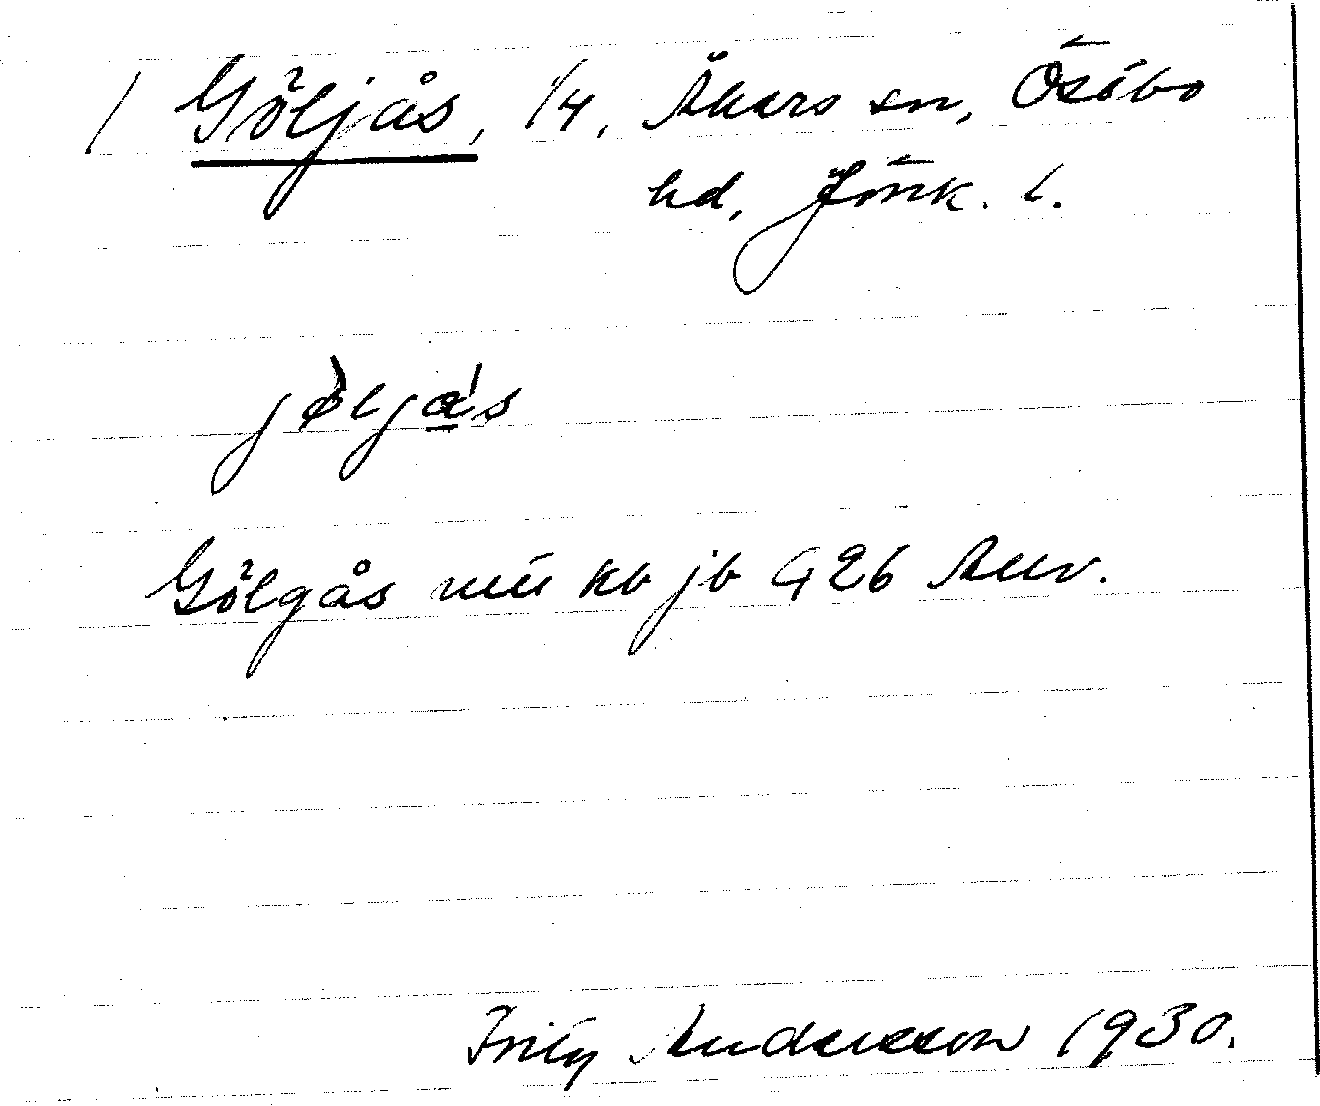 / Göljås, 1/4, Åkers sn, Östbo
hd, Jönk. l.
jø̀ljás
Gölgås mü kb jb G 26 Auv.
Fritz Andersson 1930.